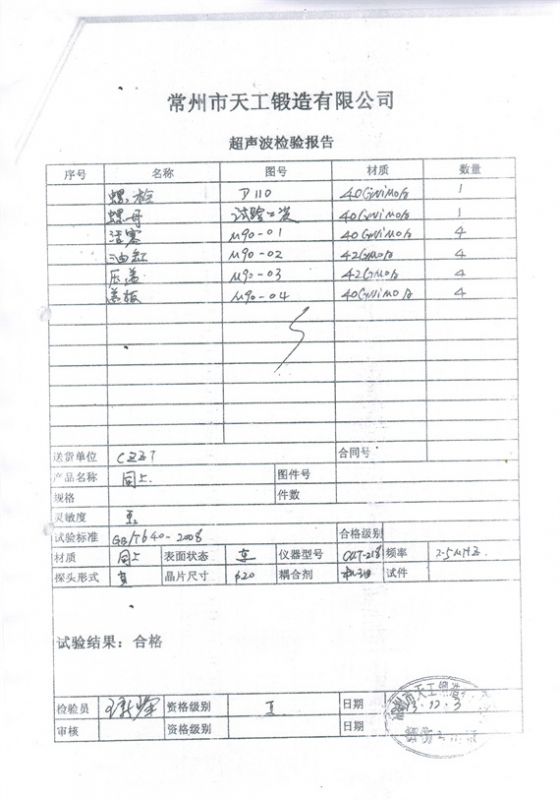 常州市天工锻造有限公司
超声波检验报告
序号 名称 图号 材质 数量
螺栓 D110 40CrNiMoA 1
螺母 试验工装 40CrNiMoA 1
活塞 M90-01 40CrNiMoA 4
油缸 M90-02 42CrMoA 4
压盖 M90-03 42CrMoA 4
盖板 M90-04 40CrNiMoA 4
送货单位 合同号
产品名称 同上 图件号
规格 件数
灵敏度
试验标准 GB/T640-2008 合格级别
材质 同上 表面状态 仪器型号 频率 2.5MHz
探头形式 直 晶片尺寸 φ20 耦合剂 机油 试件
试验结果：合格
检验员 资格级别 日期 12.3
审核 资格级别 日期
市天工锻造